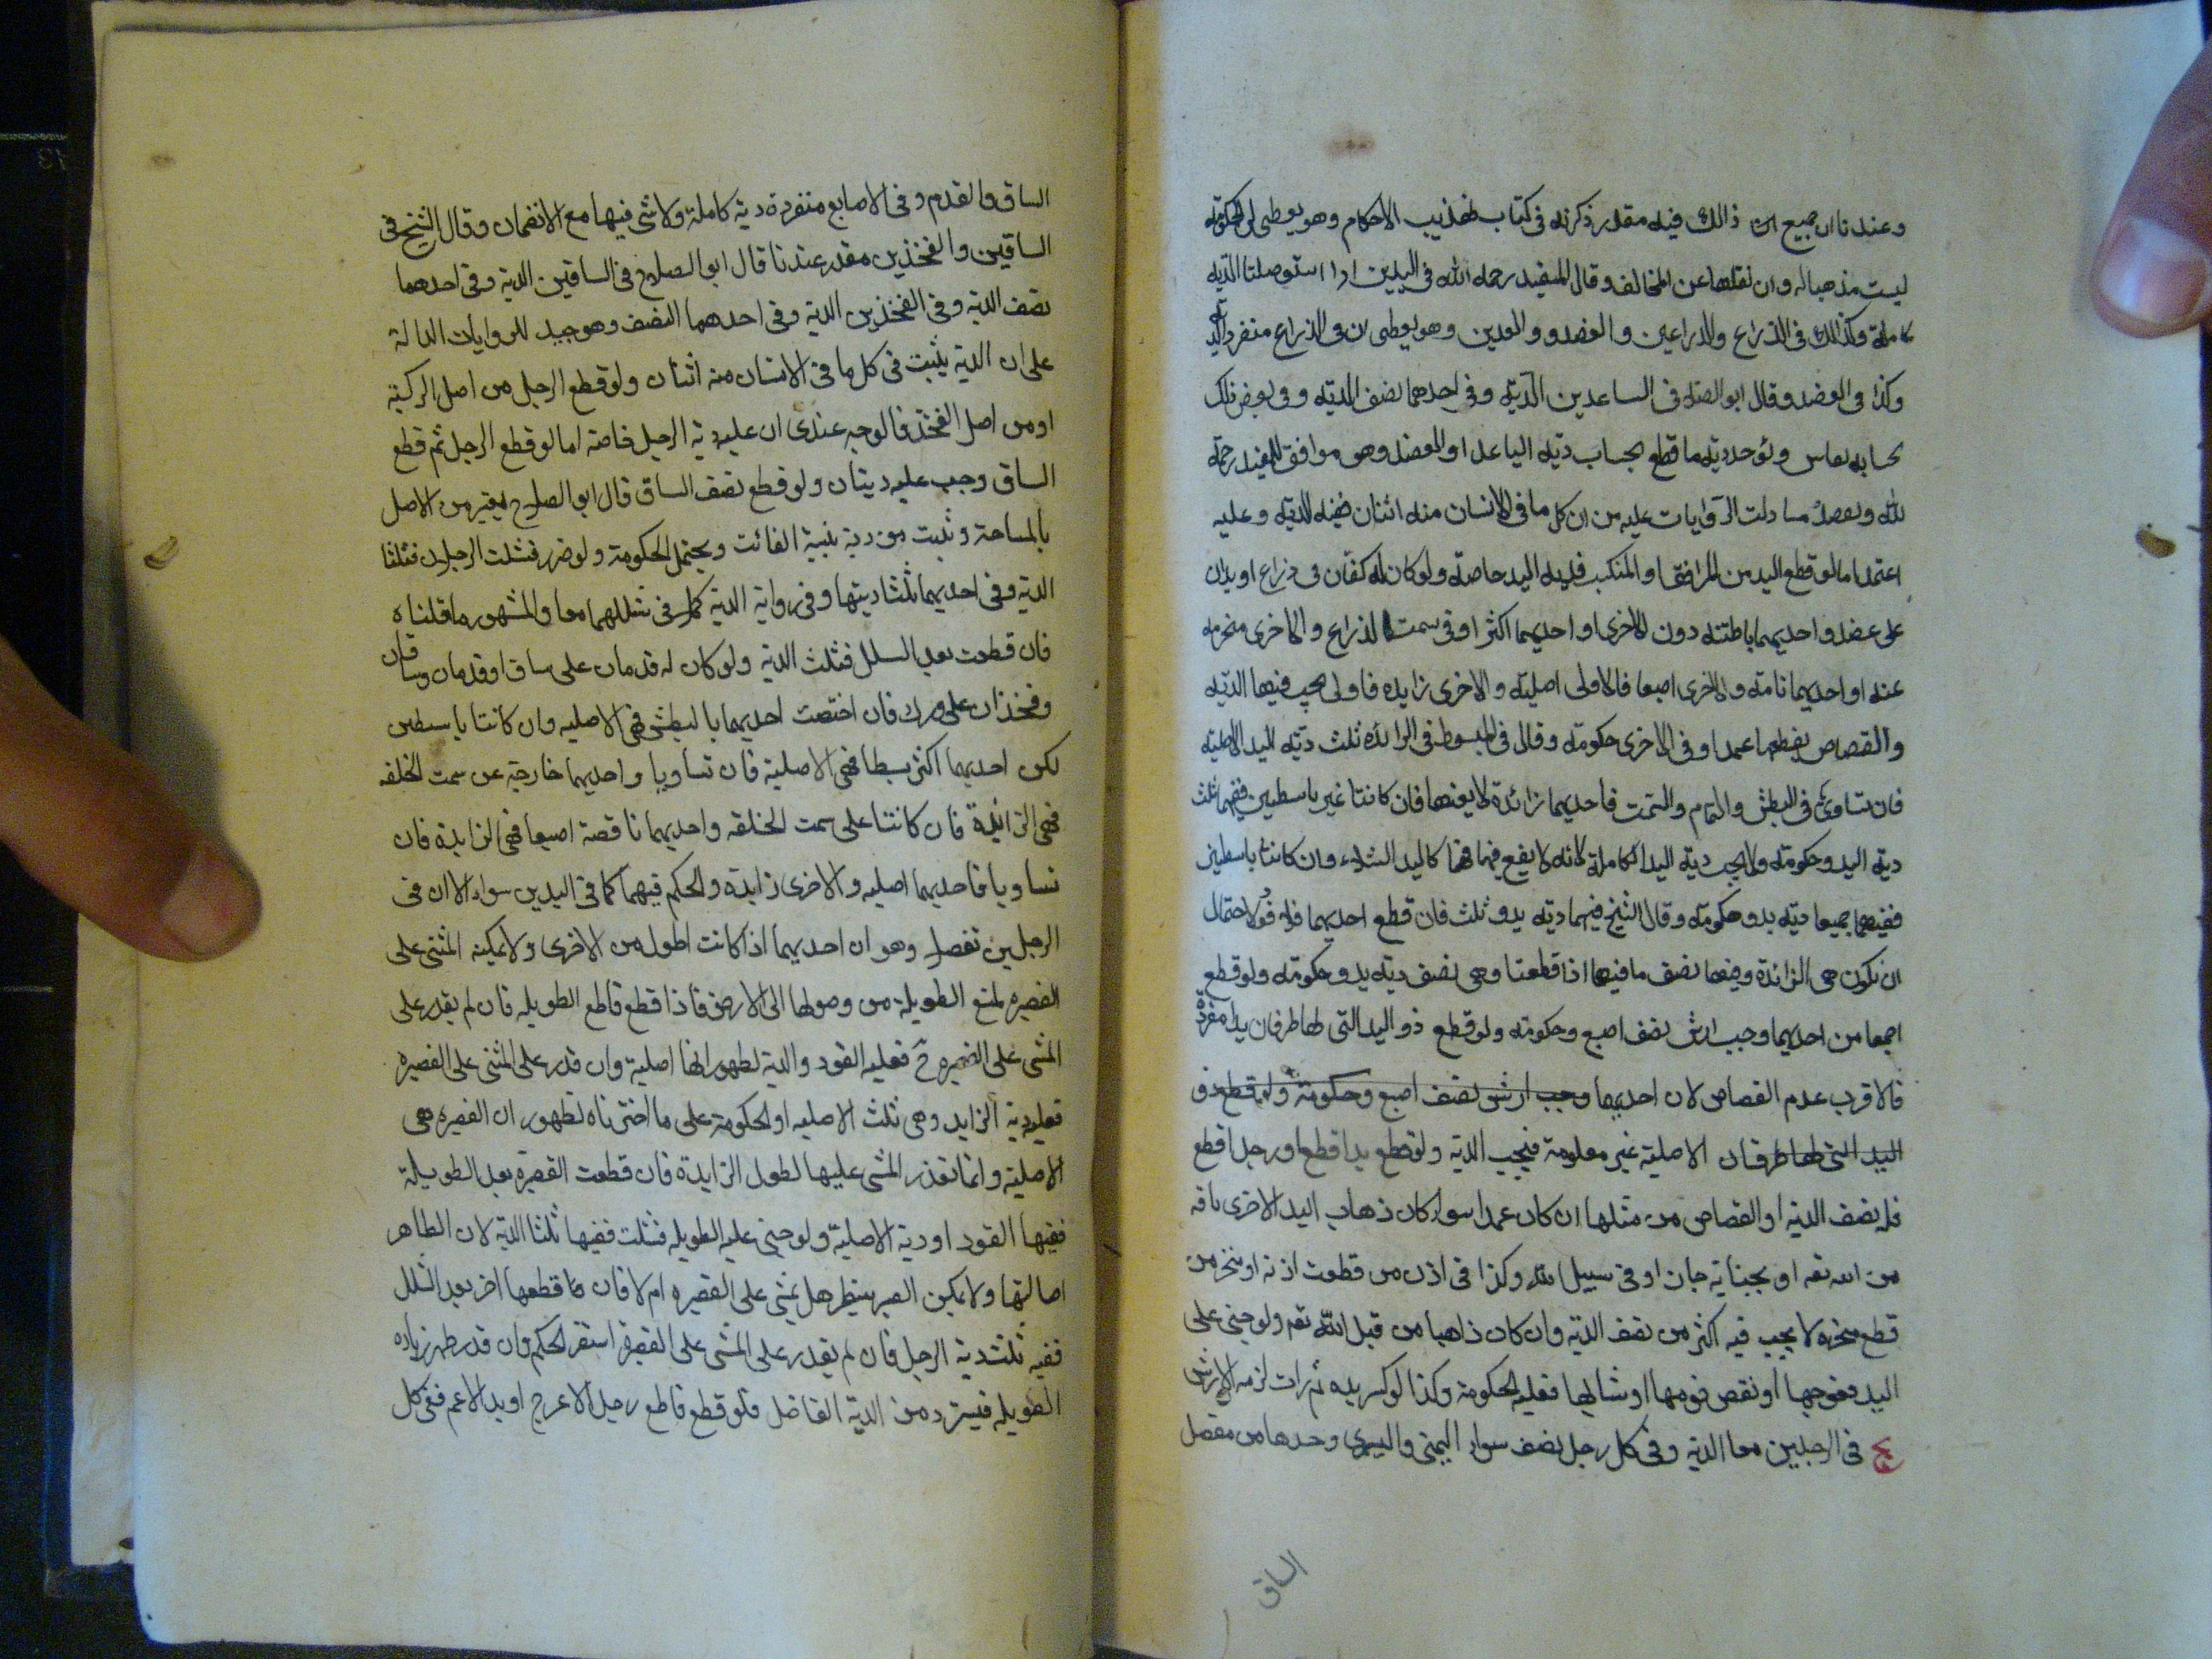 وعندنا ان جميع ذالك فيه مقدر ذكرناه في كتاب تهذيب الاحكام وهو يعطي ان الحكومة
ليست مذهبا له وان نقلها عن المخالف وقال المفيد رحمه الله في اليدين اذا استوصلتا الديه
كاملة وكذالك في الذراع والذراعين والعضد والعضدين وهو يعطي ان في الذراع منفردا الديه
وكذا في العضد وقال ابو الصلاح في الساعدين الديه وفي احدهما نصف الديه وفي بعض ذلك
بحسابه ويؤخذ ديه ما قطع بحساب ديه الساعد او العضد وهو موافق للمفيد رحمة
الله ويعضده ما دلت الروايات عليه من ان كل ما في الانسان منه اثنان ففيه الديه وعليه
اعتمد اما لو قطع اليد من المرافق او المنكب فديه اليد خاصة ولو كان له كفان في ذراع او يدان
على عضد واحديهما باطشه دون الاخرى او احديهما اكثر او في سمت الذراع والاخرى منحرفه
عنه او احديهما تامة والاخرى اصبعا فالاولى اصلية والاخرى زايده فاولى يجب فيها الديه
والقصاص بقطعها عمدا وفي الاخرى حكومة وقال في المبسوط في الزائده ثلث ديه اليد الاصلية
فان تساوى في البطش والتمام والتمت فاحديهما زائدة لا بعينها فان كانتا غير باسطين ففيهما ثلث
ديه اليد وحكومة ولا يجب ديه اليد الكاملة لانه لا يقع فيهما فهما كاليد الشلاء وان كانتا باسطين
ففيهما جميعا ديه يد وحكومة وقال الشيخ فيهما ديه يد وثلث فان قطع احديهما فلا قود لاحتمال
ان يكون هي الزائدة وفيهما نصف ما فيهما اذا قطعتا وهي نصف ديه يد وحكومة ولو قطع
اصبعا من احديهما وجب ارش نصف اصبع وحكومة ولو قطع ذو اليد التي لها طرفان يدا مفردة
فالاقرب عدم القصاص لان احديهما وجب ارش نصف اصبع وحكومة ولو قطع ذو
اليد التي لها طرفان الاصلية غير معلومة فيجب الدية ولو قطع يد اقطع او رجل اقطع
فله نصف الدية او القصاص من مثلها ان كان عمدا سواء كان ذهاب اليد الاخرى بافه
من الله تعه او بجناية جان او في سبيل الله وكذا في اذن من قطعت اذنه او منخر من
قطع منخره لا يجب فيه اكثر من نصف الدية وان كان ذاهبا من قبل الله تعه ولو جنى على
اليد فعوجها او نقص قومها او شالها فعليه الحكومة وكذا لو كسر يده ثم برات لزمه الارش
يح في الرجلين معا الدية وفي كل رجل نصف سواء اليمنى واليسرى وحدها من مفصل
الساق
الساق والقدم وفي الاصابع منفردة دية كاملة ولا شي فيها مع الانضمام وقال الشيخ في
الساقين والفخذين مقدر عندنا قال ابو الصلاح في الساقين الدية وفي احدهما
نصف الدية وفي الفخذين الدية وفي احدهما النصف وهو جيد للروايات الدالة
على ان الدية يثبت في كل ما في الانسان منه اثنان ولو قطع الرجل من اصل الركبة
او من اصل الفخذ فالوجه عندى ان عليه دية الرجل خاصة اما لو قطع الرجل ثم قطع
الساق وجب عليه ديتان ولو قطع نصف الساق قال ابو الصلاح يعتبر من الاصل
بالمساحة ويثبت من دية بنسبة الفائت ويحتمل الحكومة ولو ضرر فشلت الرجلان فثلثا
الدية وفي احديهما ثلثا ديتها وفي رواية الدية كملا في شللهما معا والمشهور ما قلناه
فان قطعت بعد السلل فثلث الدية ولو كان له قدمان على ساق او قدمان وساقان
وفخذان على ورك فان اختصت احديهما بالبطش فهي الاصليه وان كانتا باسطين
لكن احديهما اكثر بسطا فهي الاصلية فان تساويا واحديهما خارجة عن سمت الخلقه
فهي الزايدة فان كانتا على سمت الخلقه واحديهما ناقصة اصبعا فهي الزايدة فان
تساويا فاحديهما اصليه والاخرى زايدة والحكم فيهما كما في اليدين سواء الا ان في
الرجلين تفصلا وهو ان احديهما اذا كانت اطول من الاخرى ولا يمكنه المشي على
القصيره لمنع الطويلة من وصولها الى الارض فاذا قطع قاطع الطويله فان لم يقدر على
المشى على القصيره ح فعليه القود والدية لظهور انها اصلية وان قدر على المشي على القصيره
فعليه دية الزايد وهي ثلث الاصليه او الحكومة على ما اخترناه لظهور ان القصيره هي
الاصلية وانما تعذر المشي عليها لطول الزايدة فان قطعت القصيرة بعد الطويلة
ففيها القود او دية الاصلية ولو جنى عليه الطويله فشلت ففيها ثلثا الدية لان الظاهر
اصالتها ولا يمكن الصبر لينظر هل يمشي على القصيره ام لا فان قطعها اخر بعد الشلل
ففيه ثلث دية الرجل فان لم يقدر على المشى على القصيرة استقر الحكم وان قدر ظهر زياده
الطويله فيسترد من الدية الفاضل فلو قطع قاطع رجل الاعرج او يد الاعم ففي كل